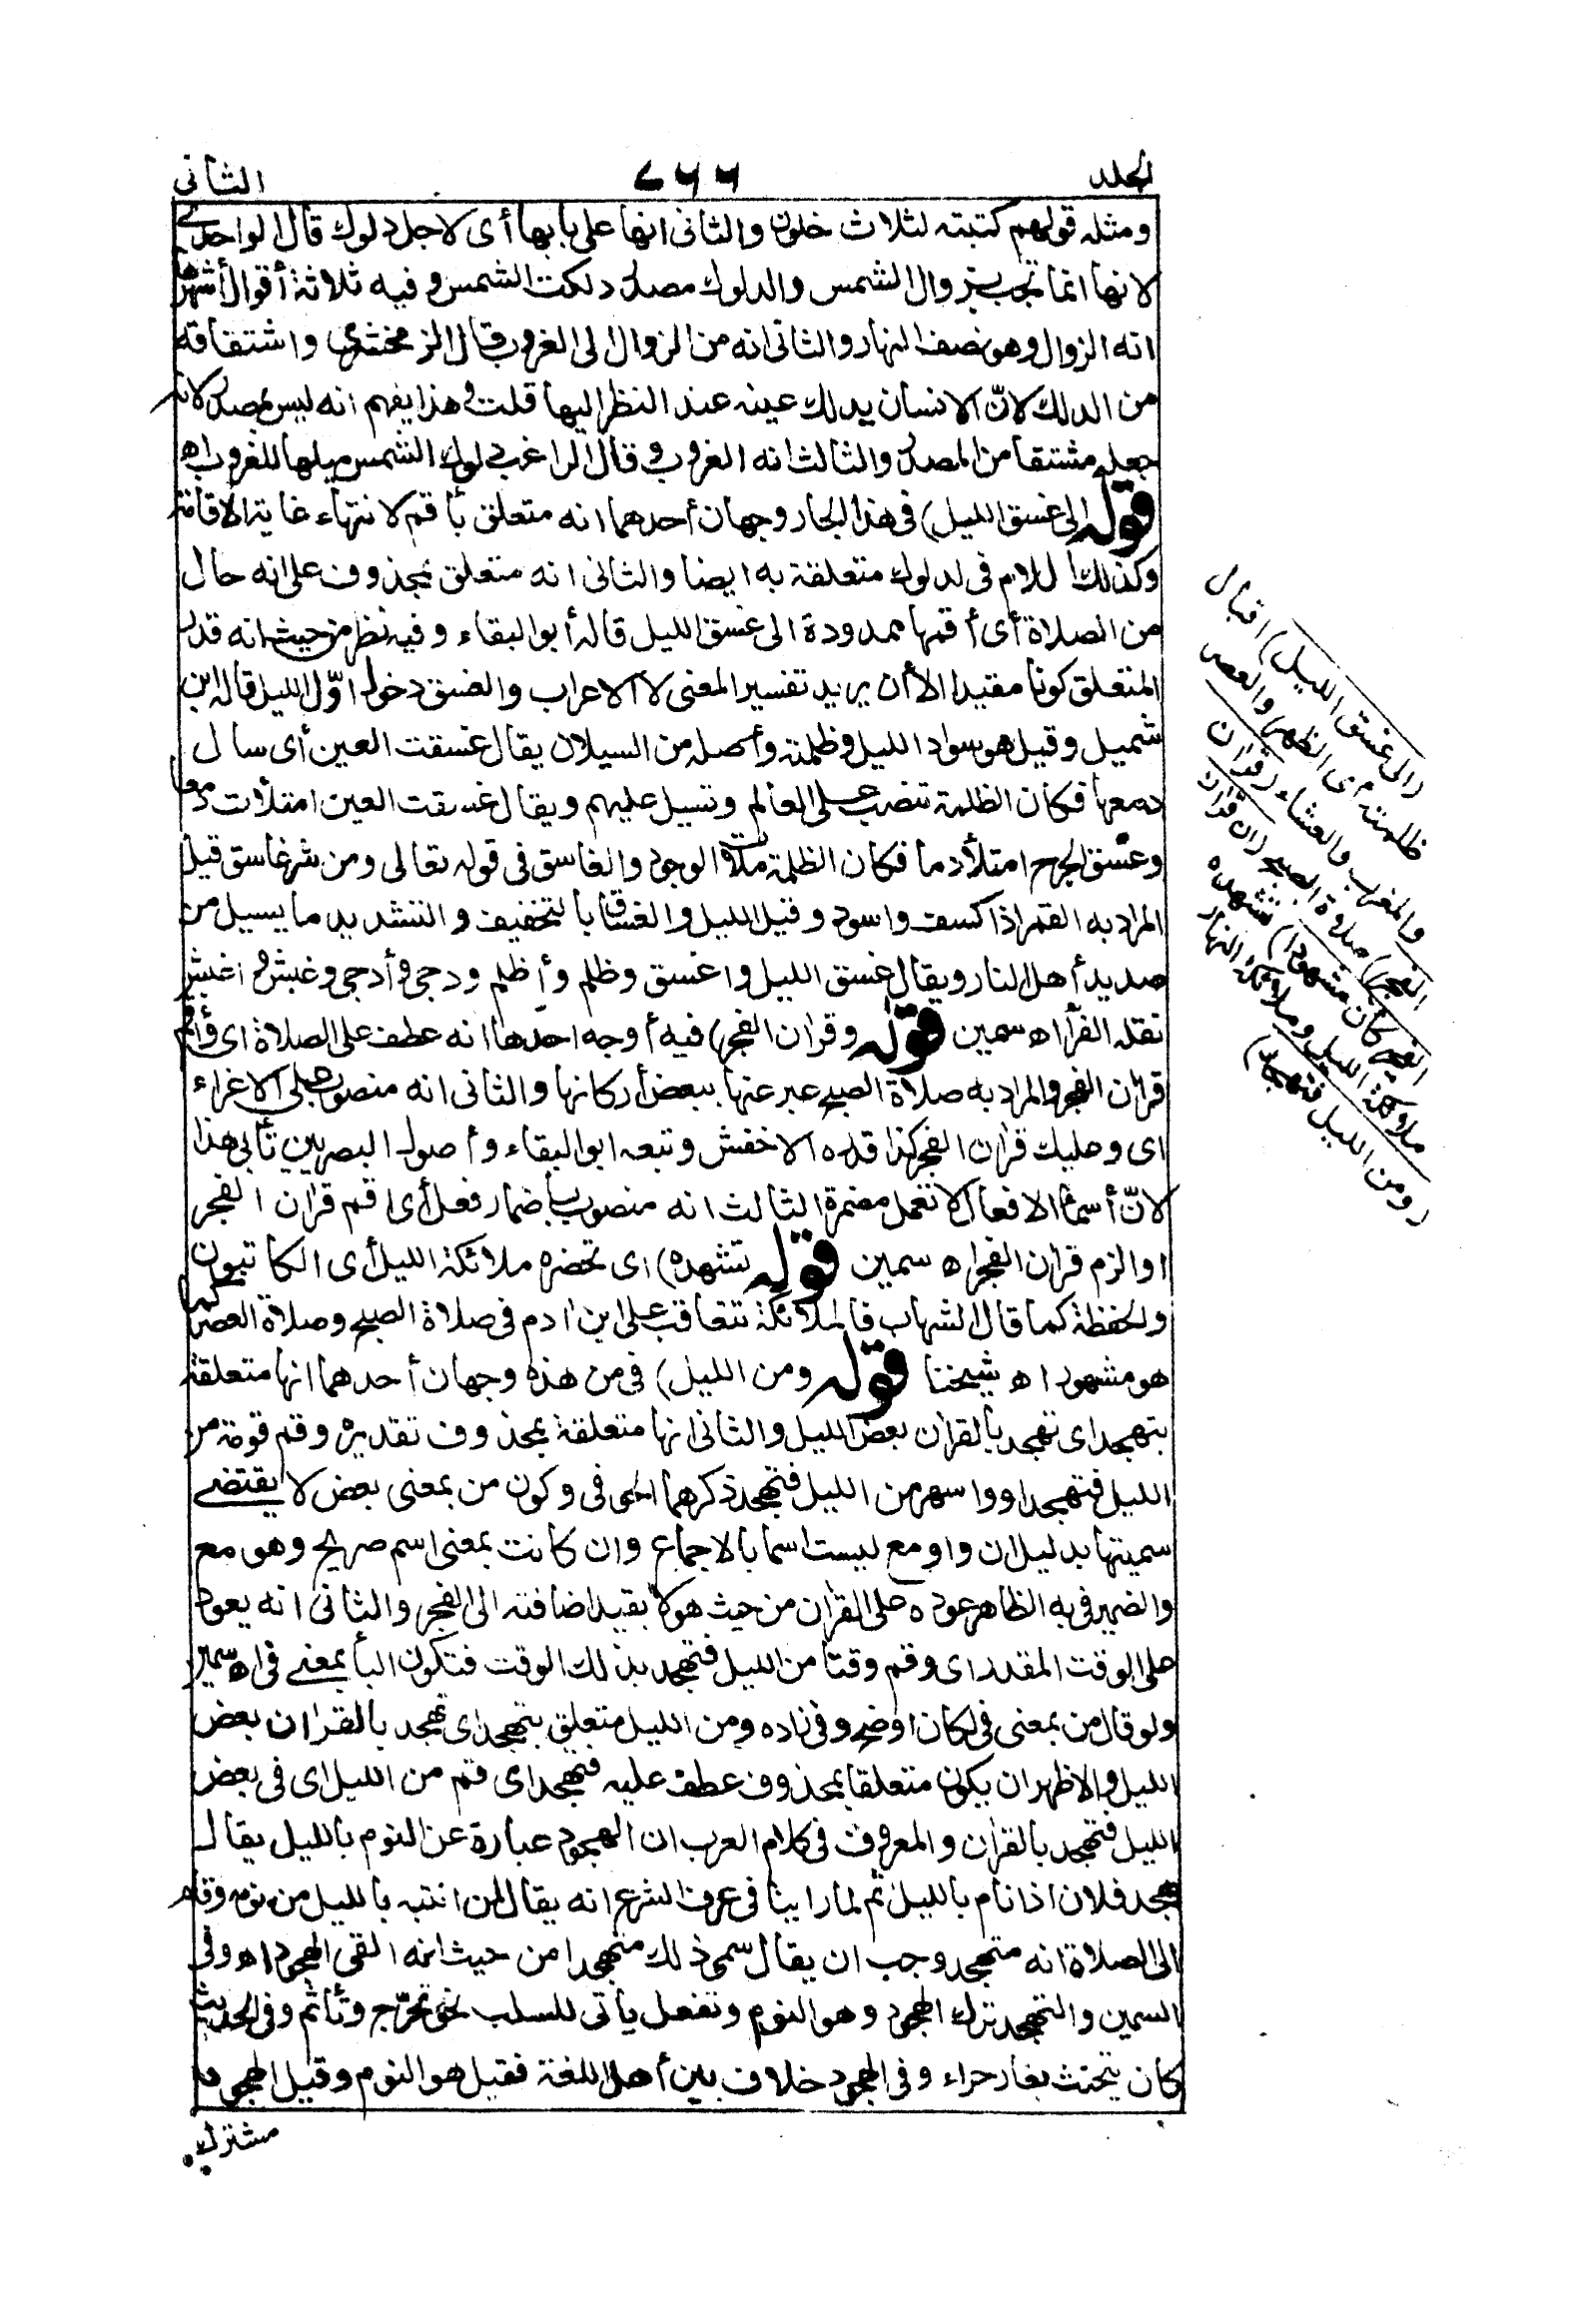 الجلد ٧٦٦ الثانى
ومثله قولهم كتبته لثلاث خلون والثانى انها على بابها أى لاجل دلوك قال الواحدى
لانها انما تجب بزوال الشمس والدلوك مصدر دلكت الشمس وفيه ثلاثة أقوال أشهرها
انه الزوال وهو نصف النهار والثانى انه من الزوال الى الغروب قال الزمخشرى واشتقاقه
من الدلك لانّ الانسان يدلك عينه عند النظر اليها قلت وهذا يفهم انه ليس بمصدر لانه
جعله مشتقا من المصدر والثالث انه الغروب وقال الراغب دلوك الشمس ميلها للغروب اه
قوله الى غسق الليل) فى هذا الجار وجهان أحدهما انه متعلق بأقم لانتهاء غاية الاقامة
وكذلك اللام فى لدلوك متعلقة به ايضا والثانى انه متعلق بمحذوف على انه حال
من الصلاة أى أقمها ممدودة الى غسق الليل قاله أبو البقاء وفيه نظر من حيث انه قدر
المتعلق كونا مقيدا الا أن يريد تفسير المعنى لا الاعراب والغسق دخول اوّل الليل قاله ابن
شميل وقيل هو سواد الليل وظلمته وأصله من السيلان يقال غسقت العين أى سال
دمعها فكان الظلمة تنصب على العالم وتسيل عليهم ويقال غسقت العين امتلأت دمعا
وغسق الجرح امتلأ دما فكان الظلمة ملأت الوجود والغاسق فى قوله تعالى ومن شر غاسق قيل
المراد به القمر اذا كسف واسود وقيل الليل والغساق بالتخفيف والتشديد ما يسيل من
صديد أهل النار ويقال غسق الليل واغسق وظلم وأظلم ودجى وأدجى وغبش واغبش
نقله الفرّاء اه سمين قوله وقران الفجر) فيه أوجه احدها انه عطف على الصلاة اى وأقم
قران الفجر والمراد به صلاة الصبح عبر عنها ببعض أركانها والثانى انه منصوب على الاغراء
اى وعليك قران الفجر كذا قدره الاخفش وتبعه ابو البقاء وأصول البصريين تأبى هذا
لانّ أسماء الافعال لا تعمل مضمرة الثالث انه منصوب باضمار فعل أى اقم قران الفجر
اوالزم قران الفجر اه سمين قوله تشهده) اى تحضره ملائكة الليل أى الكاتبون
والحفظة كما قال الشهاب فالملائكة تتعاقب على ابن ادم فى صلاة الصبح وصلاة العصر كما
هو مشهود اه شيخنا قوله ومن الليل) فى من هذه وجهان أحدهما انها متعلقة
بتهجد اى تهجد بالقران بعض الليل والثانى انها متعلقة بمحذوف تقديره وقم قومة من
الليل فتهجد او واسهر من الليل فتهجد ذكرهما الحوفى وكون من بمعنى بعض لا يقتضى
سميتها بدليل ان واو مع ليست اسما بالاجماع وان كانت بمعنى اسم صريح وهو مع
والضمير فى به الظاهر عوده على القران من حيث هو لا بقيد اضافته الى الفجر والثانى انه يعود
على الوقت المقدر اى وقم وقتا من الليل فتهجد بذلك الوقت فتكون البأ بمعنى فى اه سمين
ولو قال من بمعنى فى لكان اوضح وفى زاده ومن الليل متعلق بتهجد اى تهجد بالقران بعض
الليل والاظهر ان يكون متعلقا بمحذوف عطف عليه فتهجد اى قم من الليل اى فى بعض
الليل فتهجد بالقران والمعروف فى كلام العرب ان الهجود عبارة عن النوم بالليل يقال
هجد فلان اذا نام بالليل ثم لما راينا فى عرف الشرع انه يقال لمن انتبه بالليل من نومه وقام
الى الصلاة انه متهجد وجب ان يقال سمى ذلك متهجدا من حيث انه القى الهجود اه وفى
السمين والتهجد ترك الهجود وهو النوم وتفعل يأتى للسلب نحو تحرّج وتأثم وفى الحديث
كان يتحنث بغار حراء وفى الهجود خلاف بين أهل اللغة فقيل هو النوم وقيل الهجود
مشترك
(الى غسق الليل) اقبال
ظلمته أى الظهر والعصر
والمغرب والعشاء (وقران
الفجر) صلاة الصبح (ان قران
الفجر كان مشهودا) تشهده
ملائكة الليل وملائكة النهار
(ومن الليل فتهجد)